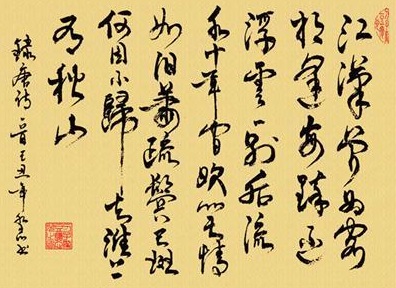 江漢曾為客
相逢每醉還
浮雲一別後流
水十年间欢笑情
如旧蕭疏鬢已斑
何因不歸去淮上
有秋山
錄唐诗一首丑年书